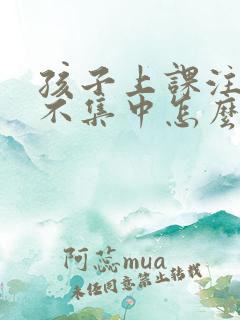 孩子上課注
不集中怎麼
阿蕊mua
未经同意禁止转载